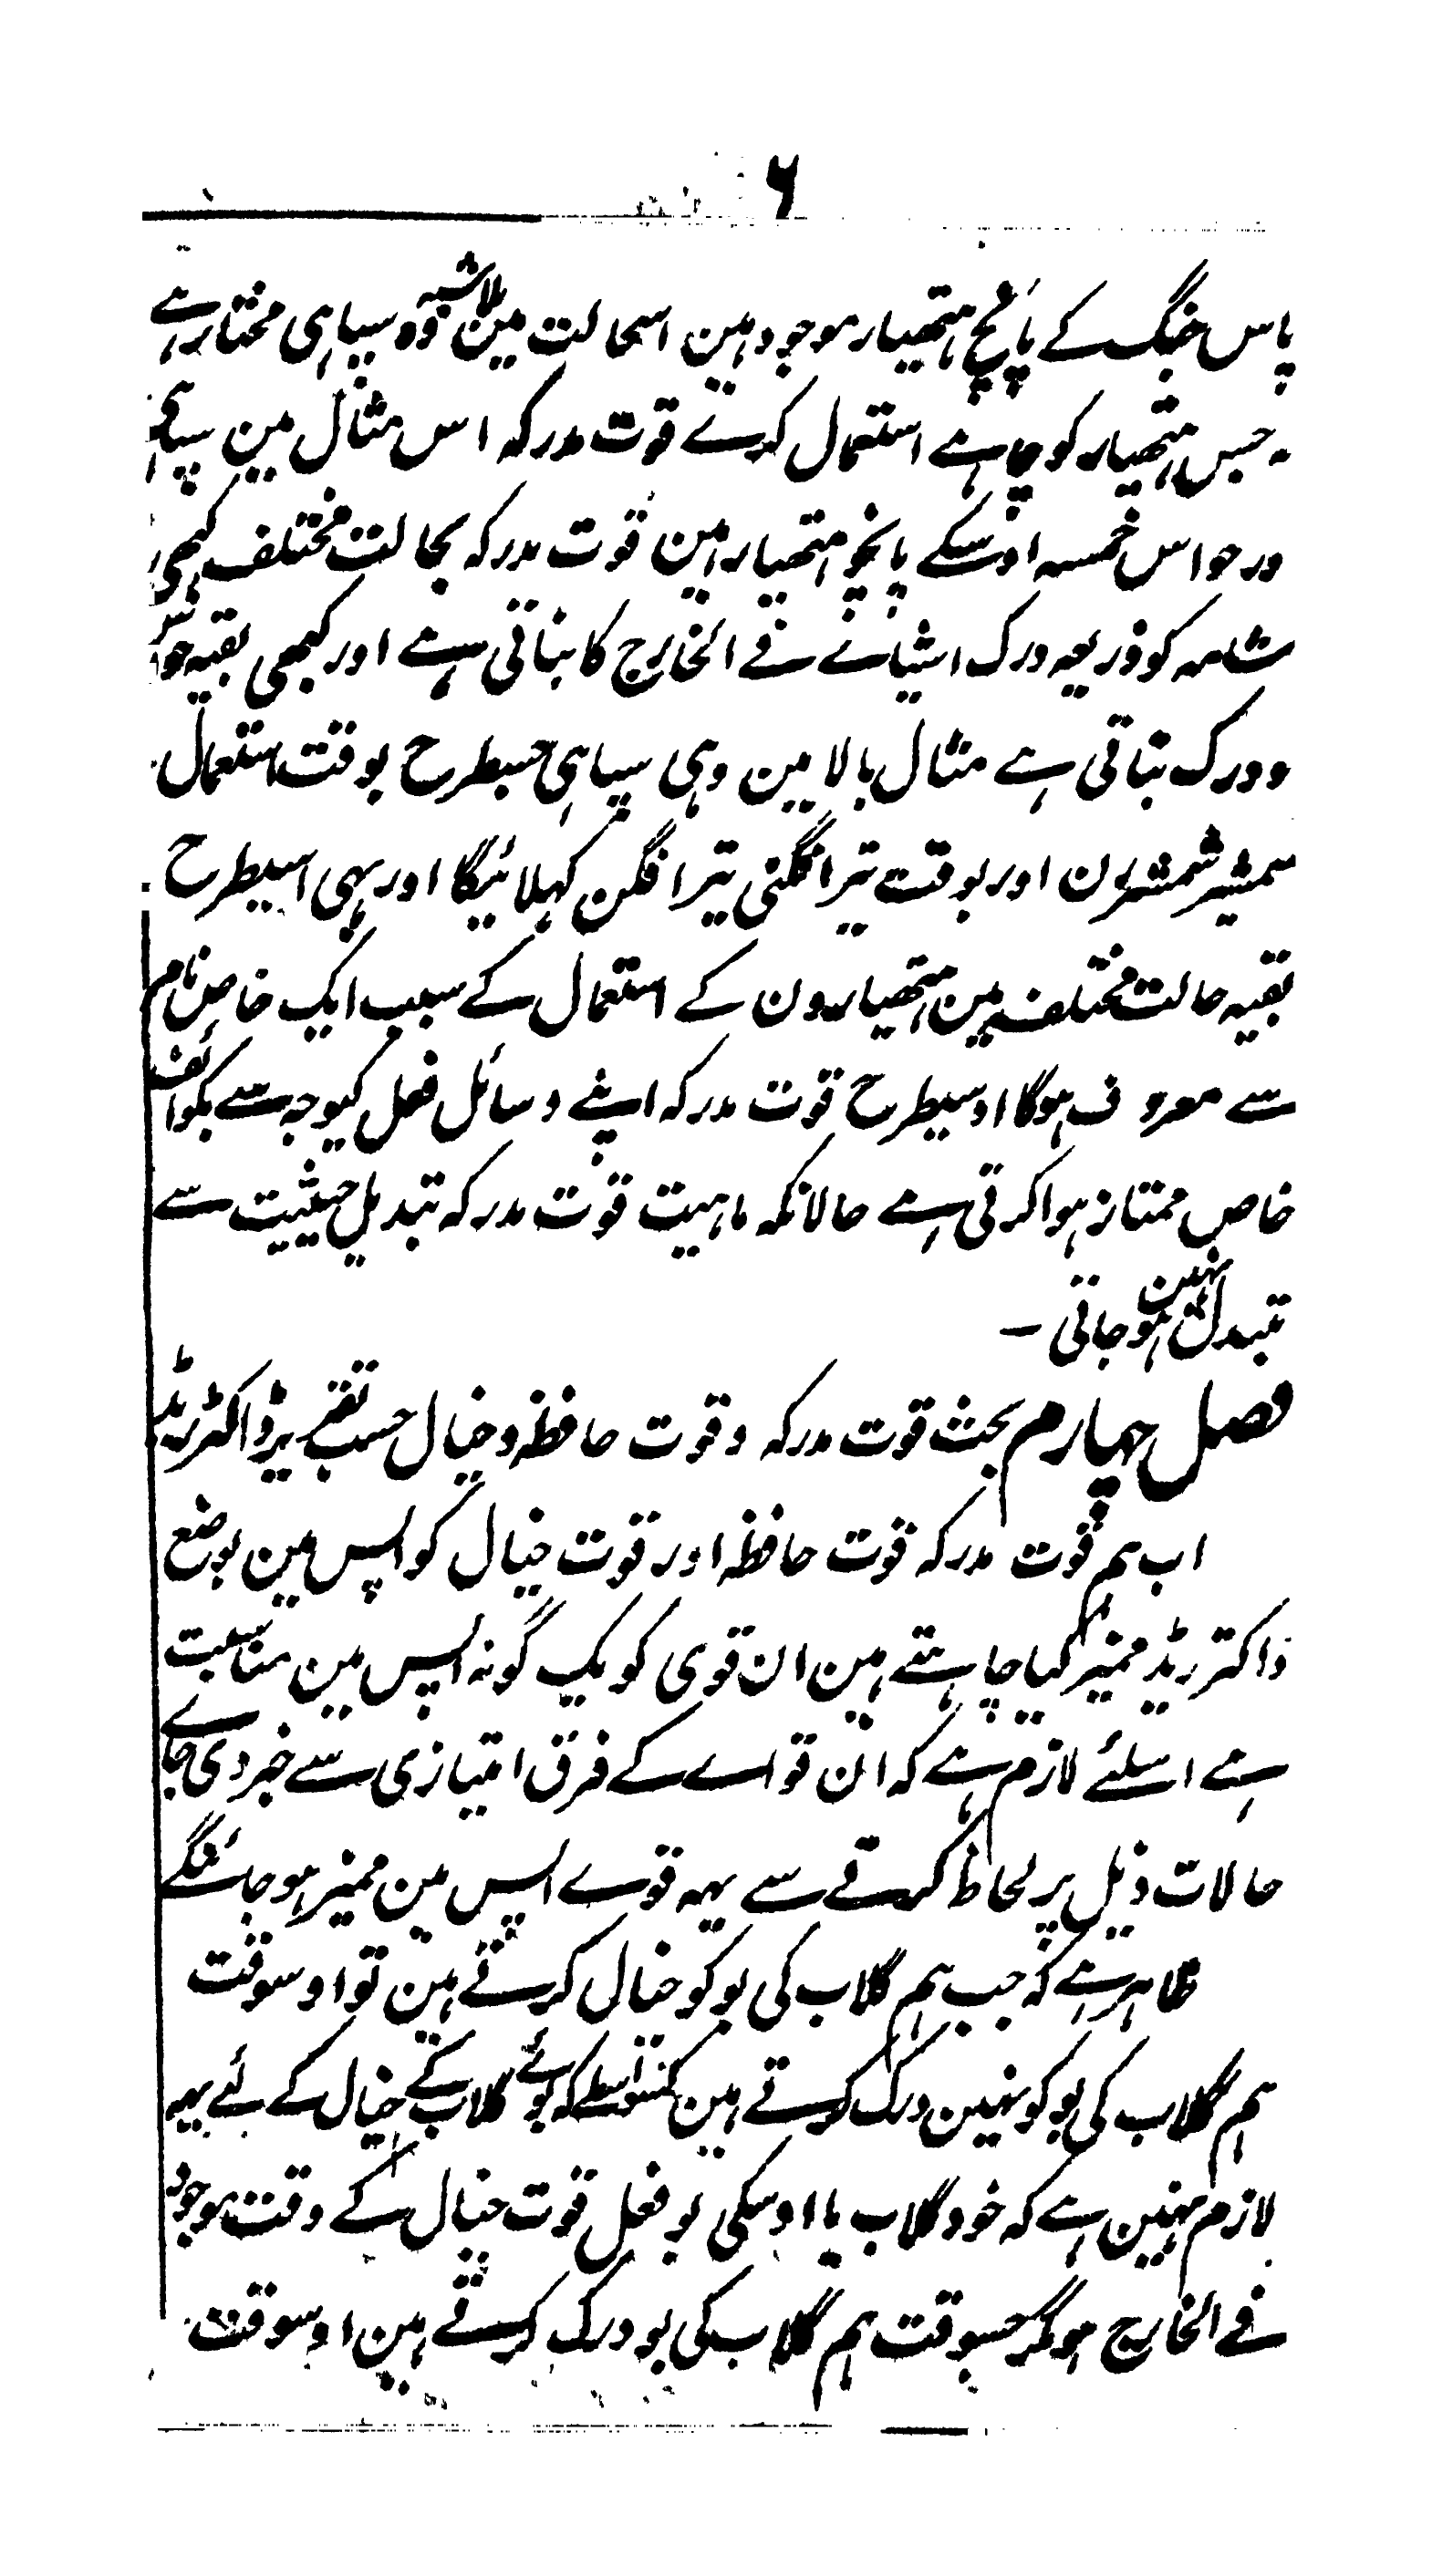 ۶
پاس جنگ کے پانچ ہتھیار موجود ہین اسحالت مین بلاشبہ وہ سپاہی مختار ہے
جس ہتھیار کو چاہے استعمال کرے قوت مدرکہ اس مثال مین سپاہی
ور حواس خمسہ اوسکے پانچو ہتھیار ہین قوت مدرکہ بحالت مختلف کبھی
شامہ کو ذریعہ درک اشیائے فے الخارج کا بناتی ہے اور کبھی بقیہ حواس
و درک بناتی ہے مثال بالا مین وہی سپاہی جسطرح بوقت استعمال
شمشیر شمشیرزن اور بوقت تیرافگنی تیرافگن کہلائیگا اور یہی اسیطرح
بقیہ حالت مختلف مین ہتھیارون کے استعمال کے سبب ایک خاص نام
سے معروف ہوگا اوسیطرح قوت مدرکہ اپنے وسائل فعل کیوجہ سے بکوائف
خاص ممتاز ہوا کرتی ہے حالانکہ ماہیت قوت مدرکہ تبدیل حیثیت سے
تبدل نہین ہوجاتی ـ
فصل چہارم بحث قوت مدرکہ و قوت حافظہ و خیال حسب تقریر ڈاکٹر ریڈ
اب ہم قوت مدرکہ قوت حافظہ اور قوت خیال کو اپس مین بوضع
ڈاکتر ریڈ ممیز کیا چاہتے ہین ان قوی کو یک گونہ اپس مین مناسبت
ہے اسلئے لازم ہے کہ ان قواے کے فرق امتیازی سے خبر دی جاے
حالات ذیل پر لحاظ کرنے سے یہہ قوے اپس مین ممیز ہو جائنگے
ظاہر ہے کہ جب ہم گلاب کی بو کو خیال کرتے ہین تو اوسوقت
ہم گلاب کی بو کو نہین درک کرتے ہین کسواسطے کہ بوئے گلاب کے خیال کے لئے یہہ
لازم نہین ہے کہ خود گلاب یا اوسکی بو فعل قوت خیال کے وقت موجود
فے الخارج ہو مگر جسوقت ہم گلاب کی بو درک کرتے ہین اوسوقت